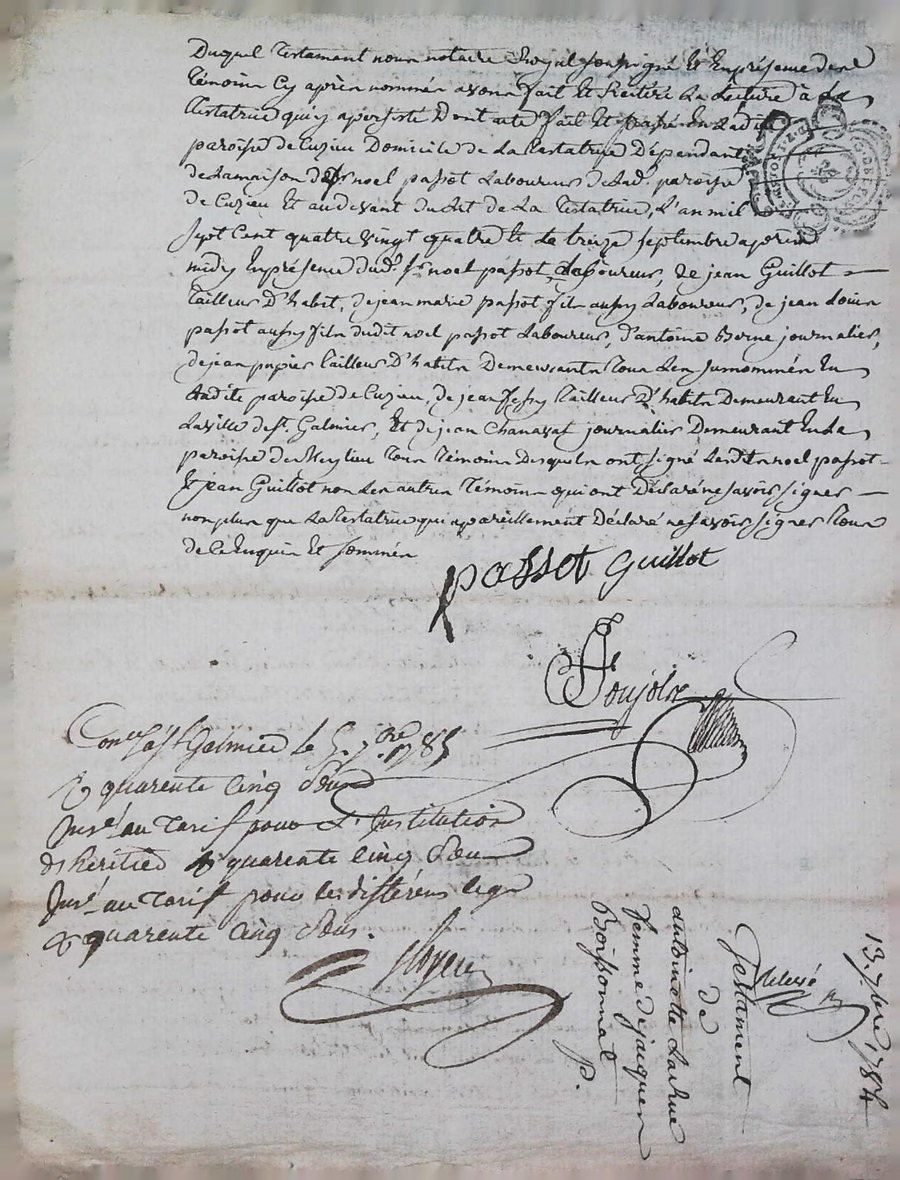 Duquel Testament nous notaire Royal soussigné Et En présence des
Témoins Cy après nommés avons fait Et Réitéré La Lecture à La
Testatrice qui y a persisté Dont acte fait Et passé En Ladite
paroisse de Cuzieu Domicile de La Testatrice Dépendant
de La maison de noel passot Laboureur de Lad. paroisse
de Cuzieu Et au devant du Lit de La Testatrice, L'an mil
sept Cent quatre vingt quatre Et Le treize septembre après
midy En présence dud. sr. noel passot, Laboureur, de jean Guillot
Tailleur D'habit, de jean marie passot fils aussy Laboureur, de jean Louis
passot aussy fils dudit noel passot Laboureur, d'antoine Borne journalier,
de jean papier Tailleur D'habits Demeurants Tous Les susnommés En
Ladite paroisse de Cuzieu, de jean Tailleur D'habits Demeurant En
La ville de st. Galmier, Et de jean Chanavat journalier Demeurant En La
paroisse de Meylieu Tous Témoins Desquels ont signé Lesdits noel passot
Et jean Guillot non Les autres Témoins qui ont Déclaré ne savoir signer
non plus que La Testatrice qui a pareillement Déclaré ne savoir signer Tous
de Ce Enquis Et sommés
passot Guillot
Conlé à St Galmier le 5. 7.bre 1785
R quarente cinq Sous
Insé au Tarif pour L'Institution
d'héritier R quarente cinq Sous
Insé au Tarif pour les différens legs
R quarente cinq Sous.
13. 7bre 1784
Testament
de
antoinette Larue
femme de jacques
Boissonnal
p.